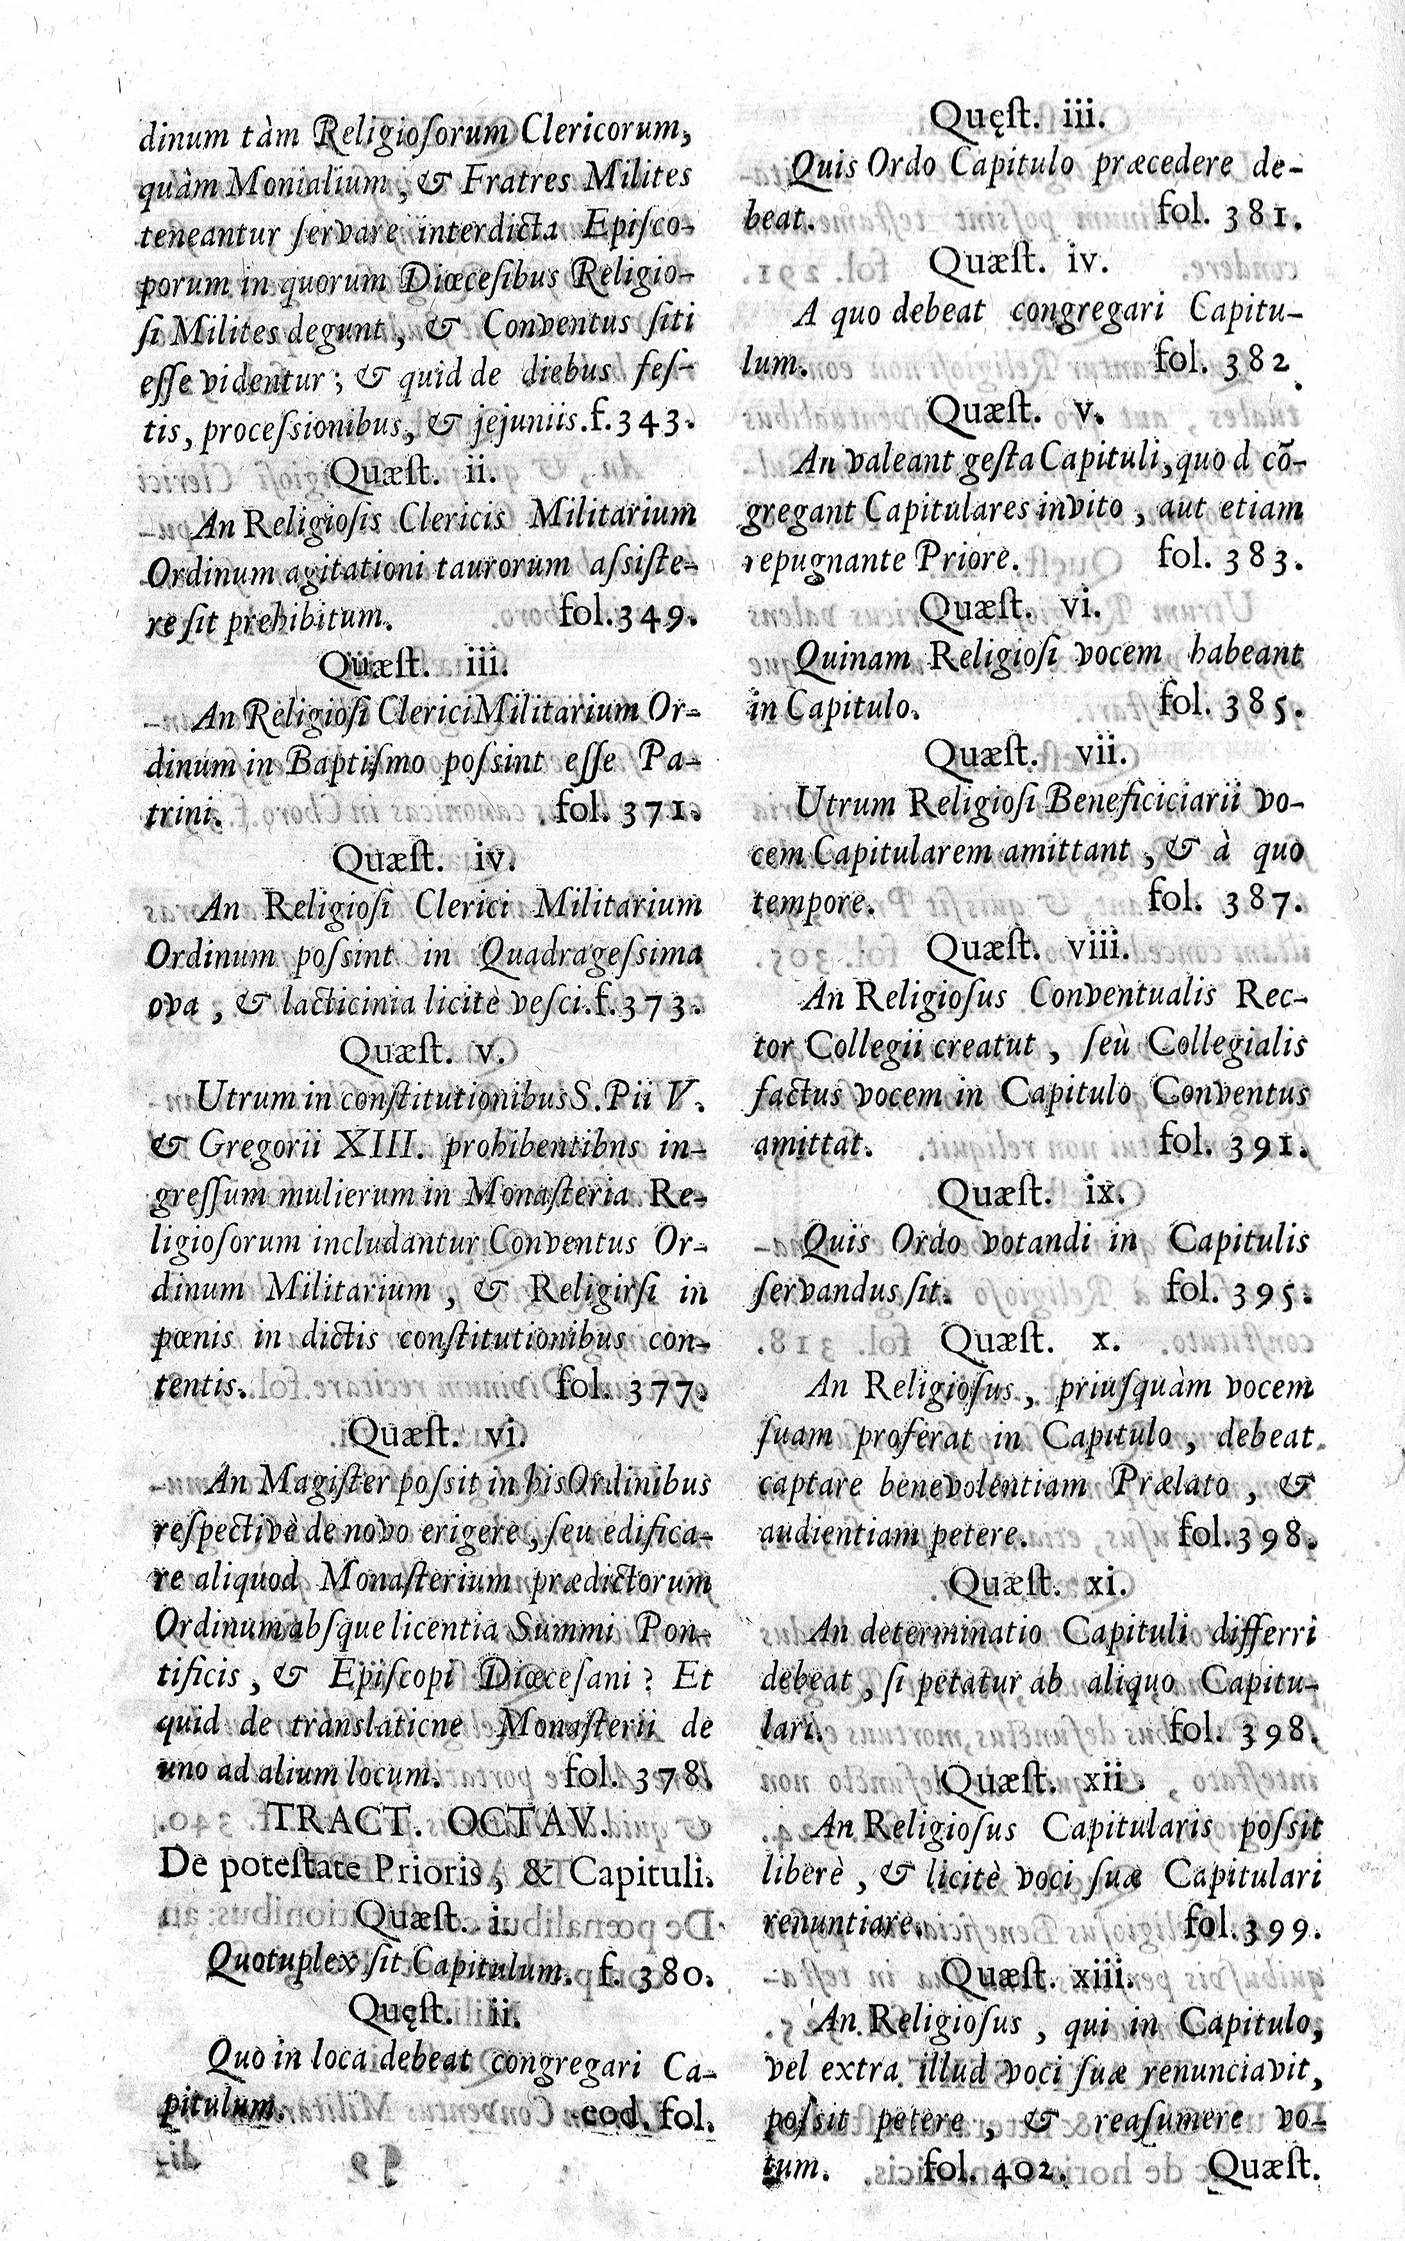 dinum tàm Religioſorum Clericorum,
quàm Monialium, & Fratres Milites
teneantur ſervare interdicta Epiſco-
porum in quorum Diœceſibus Religio-
ſi Milites degunt, & Conventus ſiti
eſſe videntur; & quid de diebus feſ-
tis, proceſsionibus, & jejuniis. f. 343.
Quæſt. ii.
An Religioſis Clericis Militarium
Ordinum agitationi taurorum aſsiſte-
re ſit prehibitum. fol. 349.
Quæſt. iii.
An Religioſi Clerici Militarium Or-
dinum in Baptiſmo poſsint eſſe Pa-
trini. fol. 371.
Quæſt. iv.
An Religioſi Clerici Militarium
Ordinum poſsint in Quadrageſsima
ova, & lacticinia licitè veſci. f. 373.
Quæſt. v.
Utrum in conſtitutionibus S. Pii V.
& Gregorii XIII. prohibentibns in-
greſſum mulierum in Monaſteria Re-
ligioſorum includantur Conventus Or-
dinum Militarium, & Religirſi in
pœnis in dictis conſtitutionibus con-
tentis. fol. 377.
Quæſt. vi.
An Magiſter poſsit in his Ordinibus
reſpectivè de novo erigere, ſeu edifica-
re aliquod Monaſterium prædictorum
Ordinum abſque licentia Summi Pon-
tificis, & Epiſcopi Diœceſani? Et
quid de translaticne Monaſterii de
uno ad alium locum. fol. 378.
TRACT. OCTAV.
De poteſtate Prioris, & Capituli.
Quæſt. i.
Quotuplex ſit Capitulum. f. 380.
Quęſt. ii.
Quo in loca debeat congregari Ca-
pitulum. eod. fol.
Quęſt. iii.
Quis Ordo Capitulo præcedere de-
beat. fol. 381.
Quæſt. iv.
A quo debeat congregari Capitu-
lum. fol. 382.
Quæſt. v.
An valeant geſta Capituli, quod cõ-
gregant Capitulares invito, aut etiam
repugnante Priore. fol. 383.
Quæſt. vi.
Quinam Religioſi vocem habeant
in Capitulo. fol. 385.
Quæſt. vii.
Utrum Religioſi Beneficiciarii vo-
cem Capitularem amittant, & à quo
tempore. fol. 387.
Quæſt. viii.
An Religioſus Conventualis Rec-
tor Collegii creatut, ſeù Collegialis
factus vocem in Capitulo Conventus
amittat. fol. 391.
Quæſt. ix.
Quis Ordo votandi in Capitulis
ſervandus ſit. fol. 395.
Quæſt. x.
An Religioſus, priuſquàm vocem
ſuam proferat in Capitulo, debeat
captare benevolentiam Prælato, &
audientiam petere. fol. 398.
Quæſt. xi.
An determinatio Capituli differri
debeat, ſi petatur ab aliquo Capitu-
lari. fol. 398.
Quæſt. xii.
An Religioſus Capitularis poſsit
liberè, & licitè voci ſuæ Capitulari
renuntiare. fol. 399.
Quæſt. xiii.
An Religioſus, qui in Capitulo,
vel extra illud voci ſuæ renunciavit,
poſsit petere, & reaſumere vo-
tum. fol. 402. Quæſt.